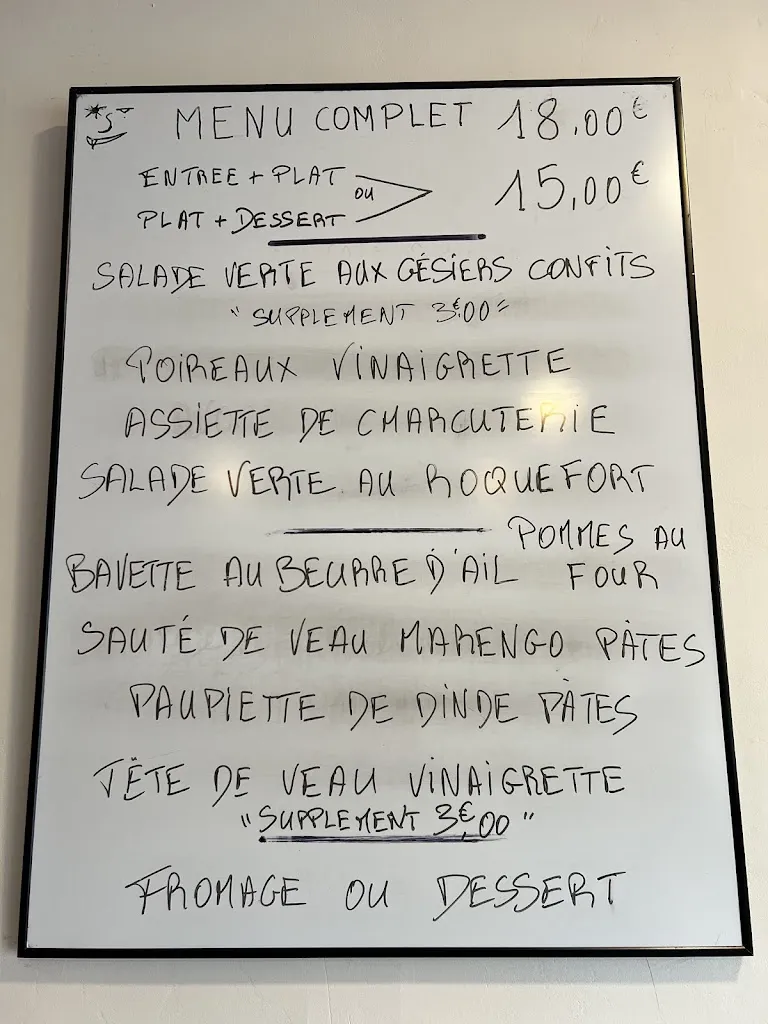 MENU COMPLET 18,00€
ENTREE + PLAT
OU
15,00€
PLAT + DESSERT
SALADE VERTE AUX GÉSIERS CONFITS
"SUPPLEMENT 3€00"
POIREAUX VINAIGRETTE
ASSIETTE DE CHARCUTERIE
SALADE VERTE AU ROQUEFORT
POMMES AU
BAVETTE AU BEURRE D'AIL FOUR
SAUTÉ DE VEAU MARENGO PÂTES
PAUPIETTE DE DINDE PÂTES
TÊTE DE VEAU VINAIGRETTE
"SUPPLEMENT 3€,00"
FROMAGE OU DESSERT